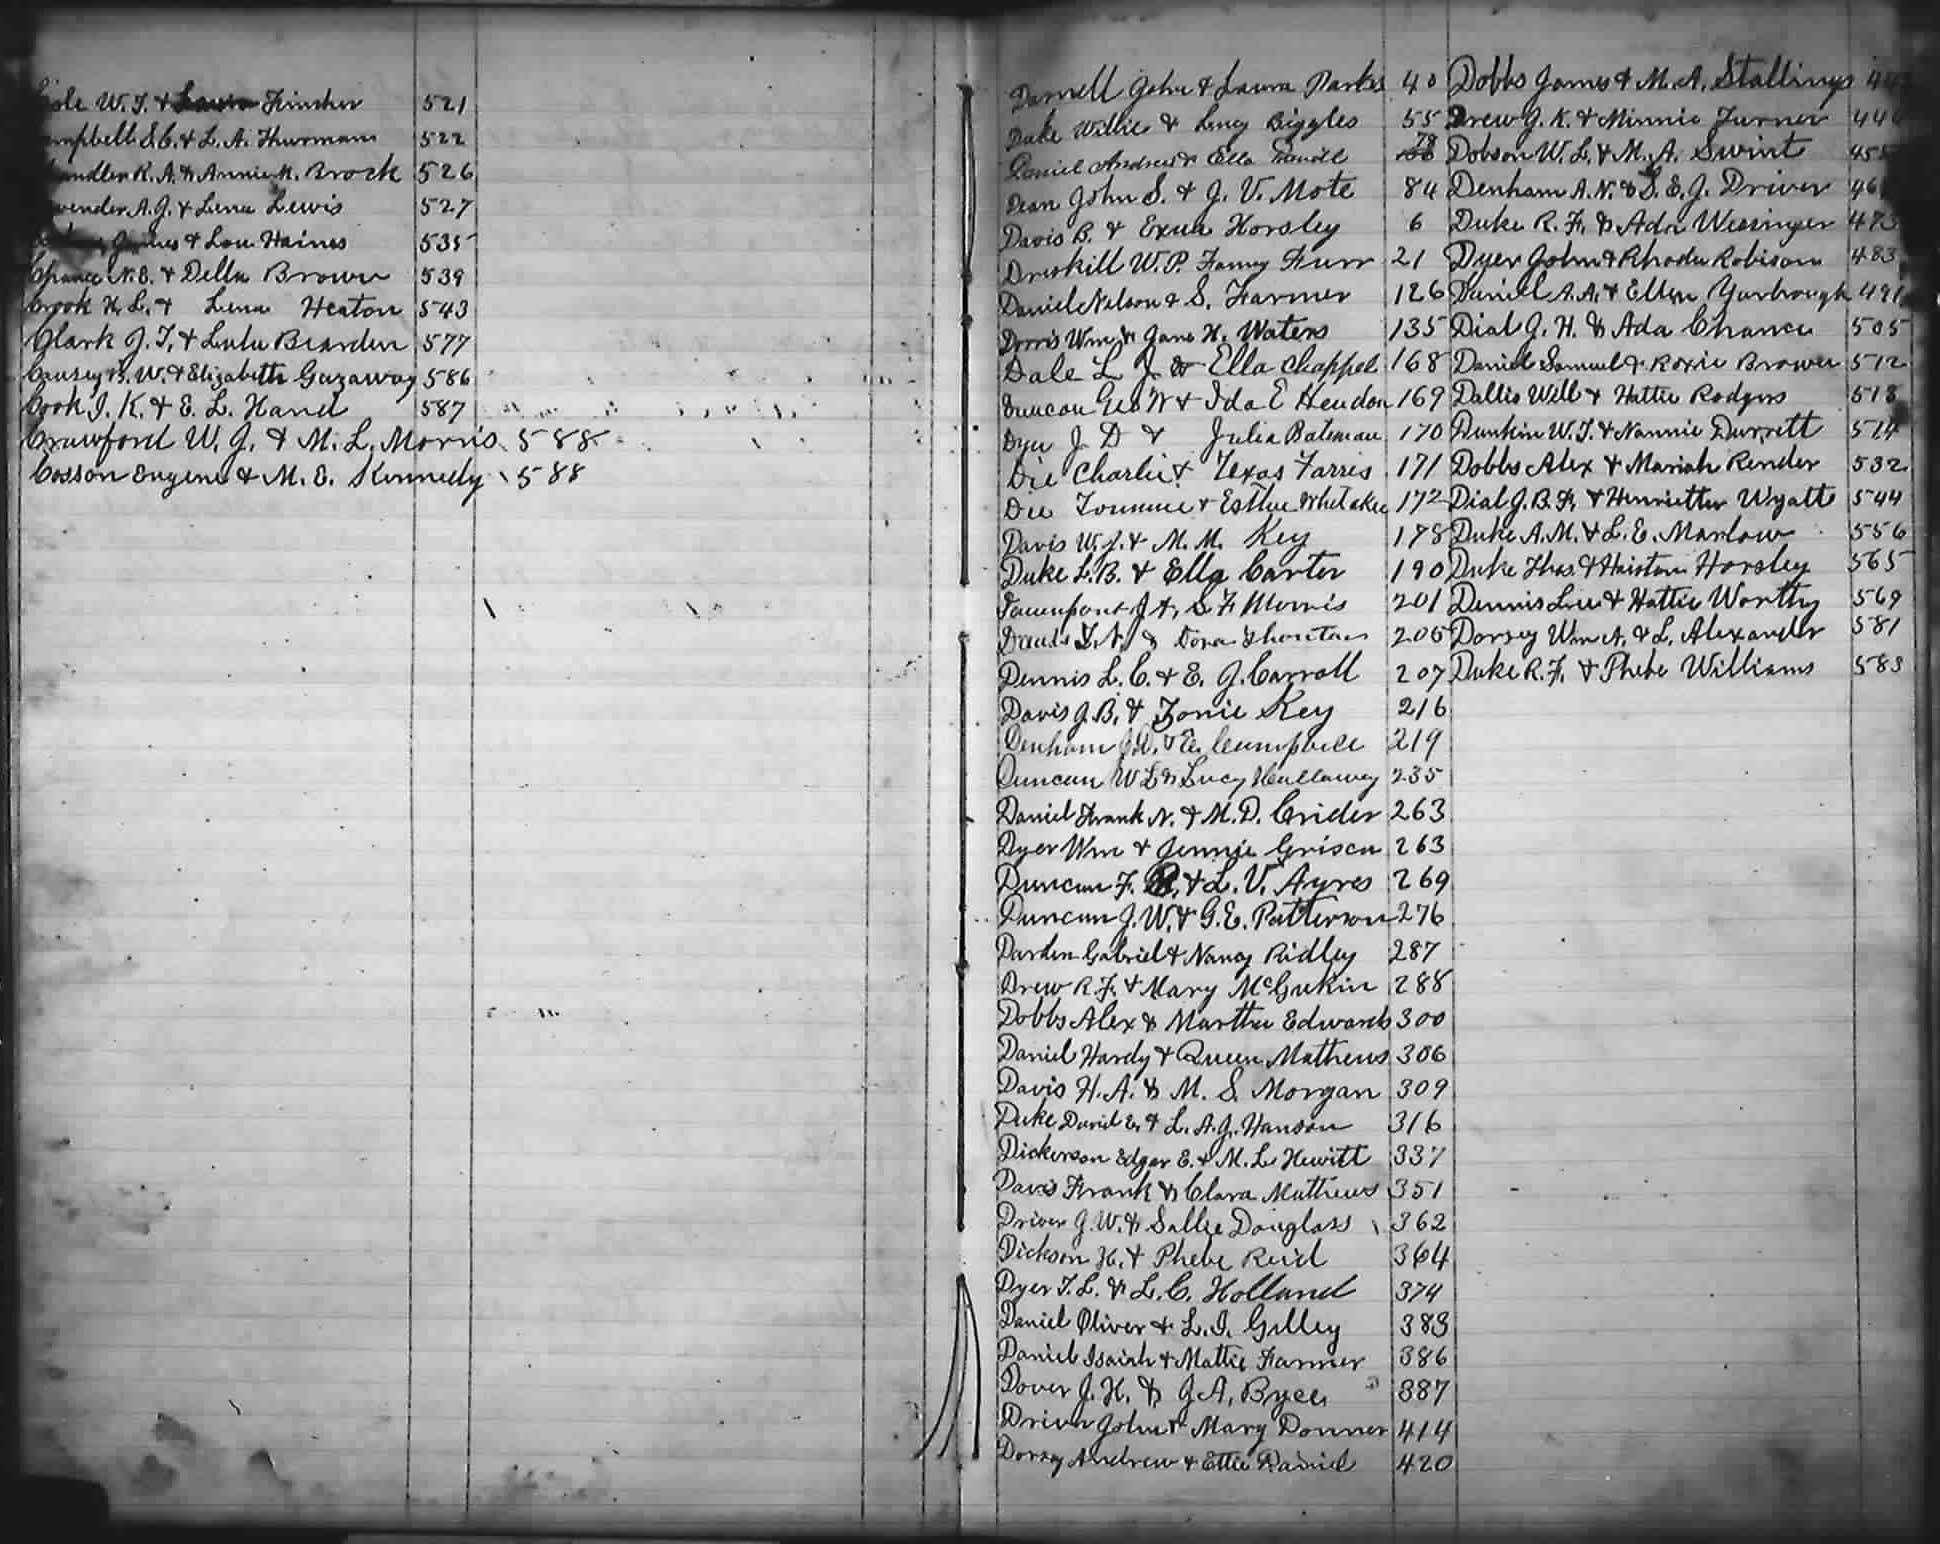 Cole W. T. & Laura Fincher 521
Campbell S. C. & L. A. Thurmam 522
Chandler R. A. & Annie M. Brock 526
Cavender A. J. & Lena Lewis 527
James & Lou Haines 535
Chance N. E. & Della Brown 539
Crook H. L. & Lena Heaton 543
Clark J. T. & Lula Bearden 577
Causey B. W. & Elizabeth Gazaway 586
Cook J. K. & E. L. Hand 587
Crawford W. J. & M. L. Morris 588
Cosson Eugene & M. E. Kennedy 588
Darnell John & Laura Parks 40
Duke Willie & Lucy Biggles 55
Daniel Andrew & Ella 78
Dean John S. & J. V. Mote 84
Davis B. & Exua Horsley 6
Driskill W. P. Fanny Furr 21
Daniel Nelson & S. Farmer 126
Dorris Wm & Jane H. Waters 135
Dale L J & Ella Chappel 168
Duncan Geo W & Ida E Hendon 169
Dyer J D & Julia Bateman 170
Die Charlie & Texas Farris 171
Die Tommie & Esther Whitaker 172
Davis W. J. & M. M. Key 178
Duke L. B. & Ella Carter 190
Davenport J A, S F Morris 201
T. N. & Dora Thornton 205
Dennis L. C. & E. J. Carroll 207
Davis J. B. & Zonie Key 216
Denham J. D. & E. 219
Duncan W L & Lucy Hallaway 235
Daniel Frank N. & M. D. Crider 263
Dyer Wm & Jennie Griscu 263
Duncan F. R. & L. V. Ayres 269
Duncan J. W. & G. E. Patterson 276
Darden Gabriel & Nancy Ridley 287
Drew R. F. & Mary McGukin 288
Dobbs Alex & Martha Edwards 300
Daniel Hardy & Queen Mathews 306
Davis H. A. & M. S. Morgan 309
Duke David E. & L. A. J. Hanson 316
Dickerson Edgar E. & M. L. Hewitt 337
Davis Frank & Clara Mathews 351
Driver J. W. & Sallie Douglass 362
Dickson H. & Phebe Reid 364
Dyer T. L. & L. C. Holland 374
Daniel Oliver & L. I. Gilley 383
Daniel Isaiah & Mattie Farmer 386
Dover J. H. & J. A. Byce 387
Driver John & Mary Donner 414
Dorsey Andrew & Ettie Daniel 420
Dobbs James & M. A. Stallings
Drew J. K. & Minnie Turner
Dobson W. L. & M. A. Swint
Denham A. N. & S. E. J. Driver
Duke R. F. & Ada Wessinger 473
Dyer John & Rhoda Robison 483
Daniel A. A. & Ellen Yarbrough 491
Dial J. H. & Ada Chance 505
Daniel Samuel & Roxie Brown 512
Dallis Will & Hattie Rodgers 518
Dunkin W. T. & Nannie Durrett 524
Dobbs Alex & Mariah Render 532
Dial J. B. F. & Henrietta Wyatt 544
Duke A. M. & L. E. Marlow 556
Duke Thos. & Hairston Horsley 565
Dennis Lee & Hattie Worthy 569
Dorsey Wm A. & L. Alexander 581
Duke R. F. & Phebe Williams 583